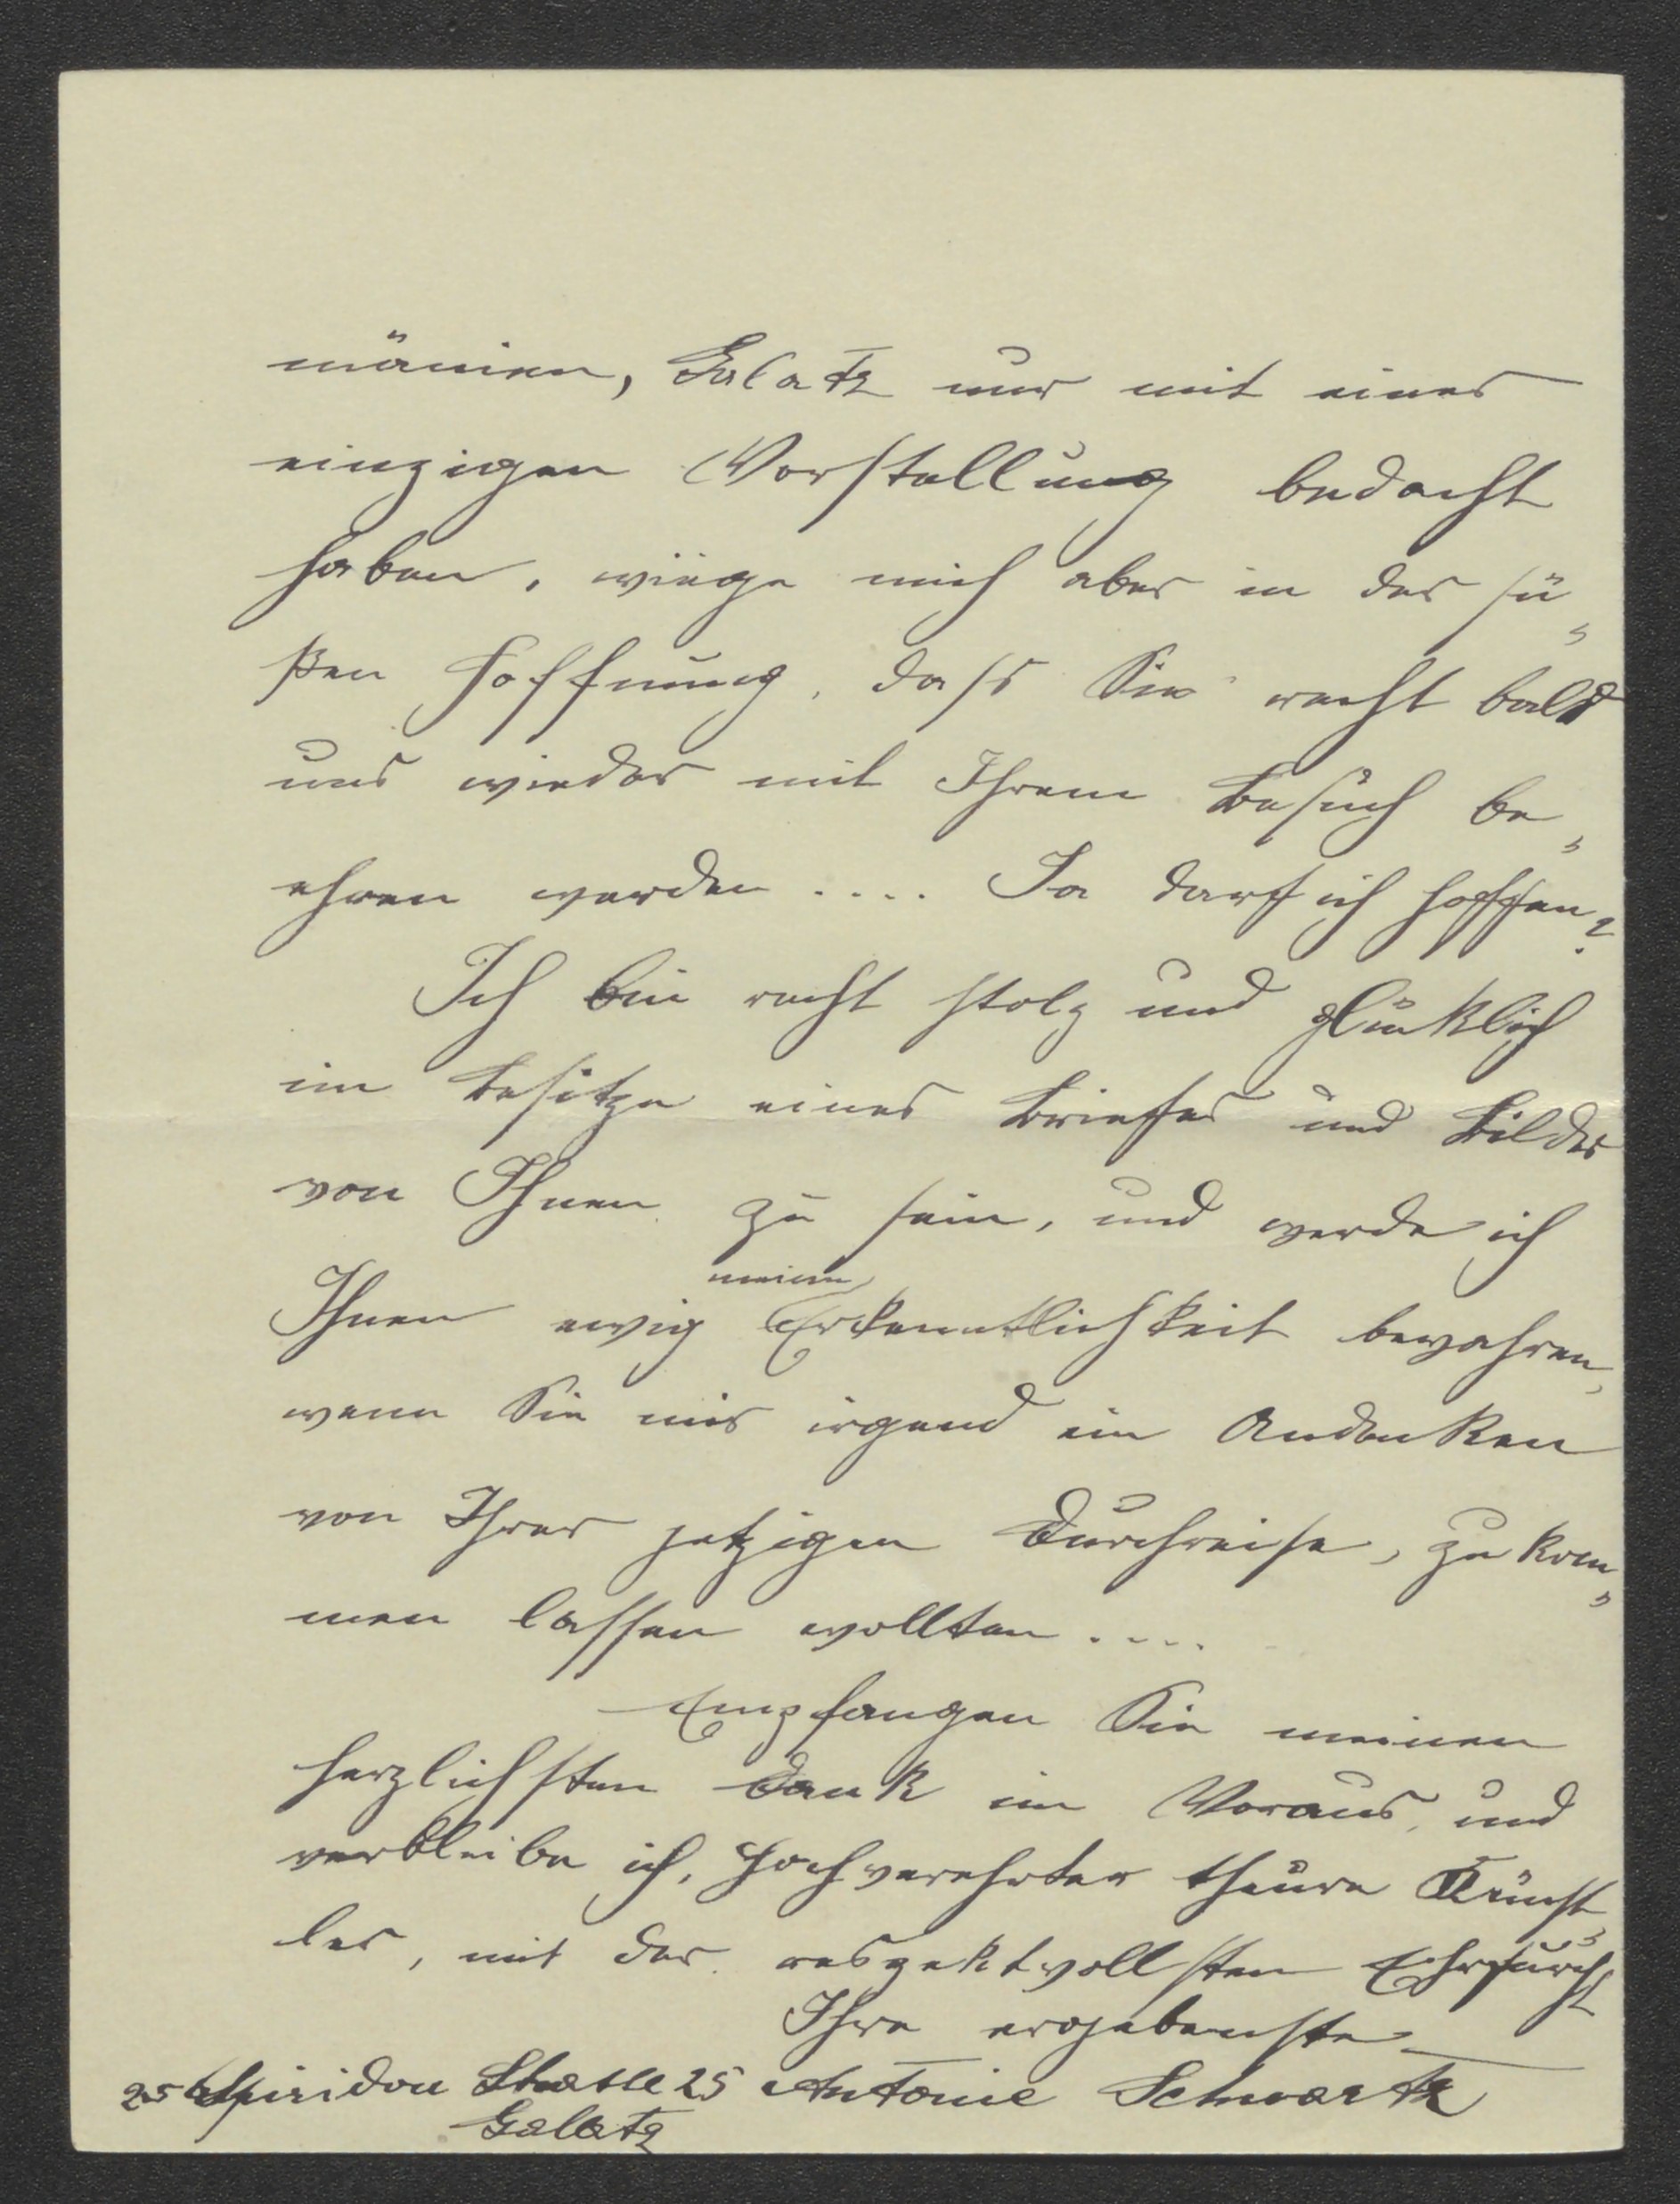 mänien, Galatz nur mit einer
einzigen Vorstellung bedacht
haben, wiege mich aber in der sü„
ßen Hoffnung, dass Sie recht bald
uns wieder mit Ihrem Besuch be„
ehren werden .... Ja darf ich hoffen?
Ich bin recht stolz und glücklich
im Besitze eines Briefes und Bildes
von Ihnen zu sein, und werde ich
Ihnen ewig meine Erkenntlichkeit bewahren,
wenn Sie mir irgend ein Andenken
von Ihrer jetzigen Durchreise, zu kom„
men lassen wollten ....
Empfangen Sie meinen
herzlichsten Dank im Voraus, und
verbleibe ich, Hochverehrter theurer Künst„
ler, mit der respektvollsten Ehrfurcht
Ihre ergebenste
25 Spiridon Strasse 25 Antonie Schwartz
Galatz